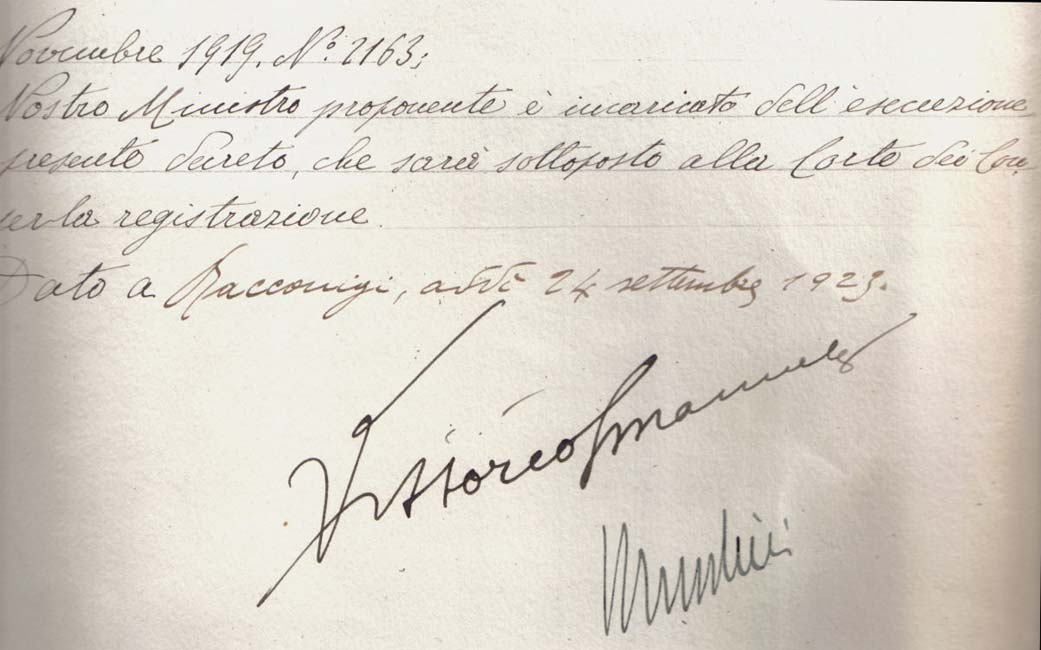 Novembre 1919. N.º 2163;
Nostro Ministro proponente è incaricato dell'esecuzione
presente decreto, che sarà sottoposto alla Corte dei Con
per la registrazione.
Dato a Racconigi, addì 24 settembre 1923.
Vittorio Emanuele
Mussolini